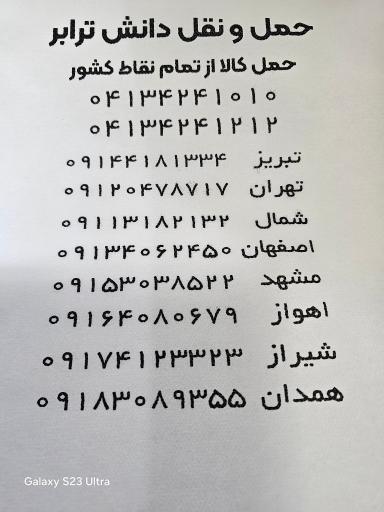 حمل و نقل دانش ترابر
حمل کالا از تمام نقاط کشور
۰۴۱۳۴۲۴۱۰۱۰
۰۴۱۳۴۲۴۱۲۱۲
تبریز ۰۹۱۴۴۱۸۱۳۳۴
تهران ۰۹۱۲۰۴۷۸۷۱۷
شمال ۰۹۱۱۳۱۸۲۱۳۲
اصفهان ۰۹۱۳۴۰۶۲۴۵۰
مشهد ۰۹۱۵۳۰۳۸۵۲۲
اهواز ۰۹۱۶۴۰۸۰۶۷۹
شیراز ۰۹۱۷۴۱۲۳۳۲۳
همدان ۰۹۱۸۳۰۸۹۳۵۵
Galaxy S23 Ultra